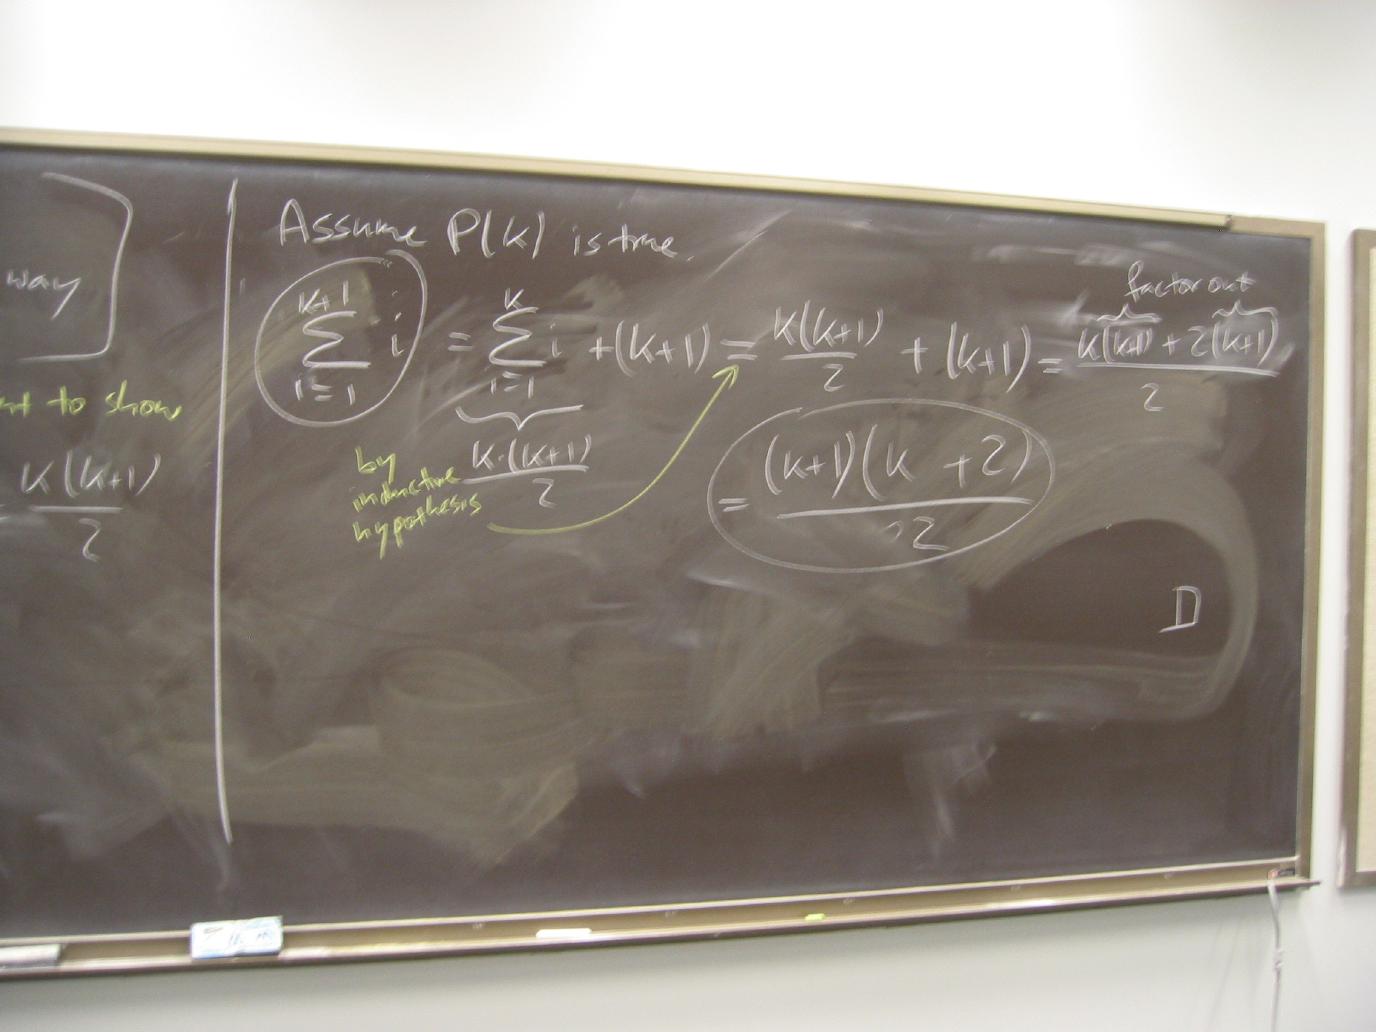 way
to show
k(k+1)
2
Assume P(k) is true.
k+1
∑ i
i=1
= k
∑ i
i=1
+(k+1) = k(k+1)/2 + (k+1) = k(k+1) + 2(k+1)/2
factor out
k·(k+1)
2
by
inductive
hypothesis
= (k+1)(k +2)
2